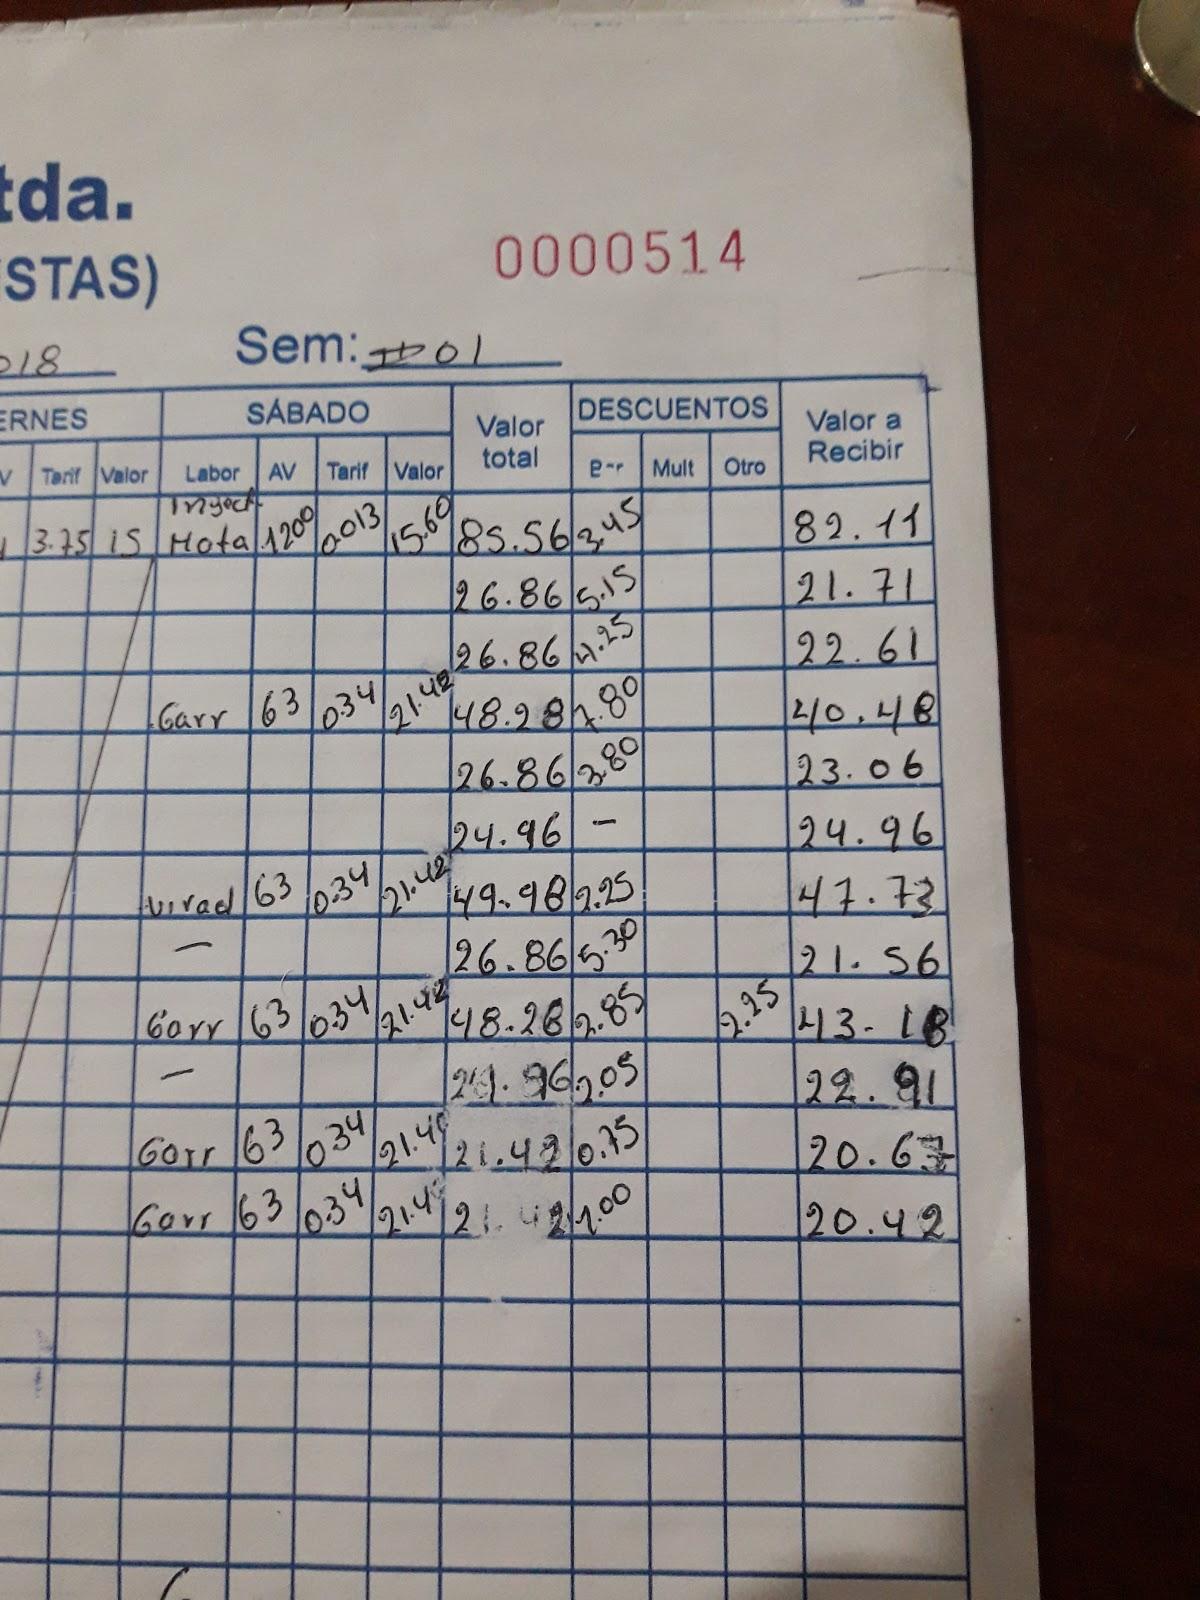 tda.
ISTAS)
0000514
018 Sem: 01
ERNES SÁBADO Valor total DESCUENTOS Valor a Recibir
V Tarif Valor Labor AV Tarif Valor Mult Otro
3.75 15 Inyect. Hota 1200 0.013 15.60 85.56 3.45 82.11
26.86 5.15 21.71
26.86 4.25 22.61
Garr 63 0.34 21.42 48.28 7.80 40.48
26.86 3.80 23.06
24.96 – 24.96
virad 63 0.34 21.42 49.98 2.25 47.73
– 26.86 5.30 21.56
Garr 63 0.34 21.42 48.28 2.85 2.25 43.18
– 24.96 2.05 22.91
Garr 63 0.34 21.42 0.75 20.67
Garr 63 0.34 21.42 1.00 20.42